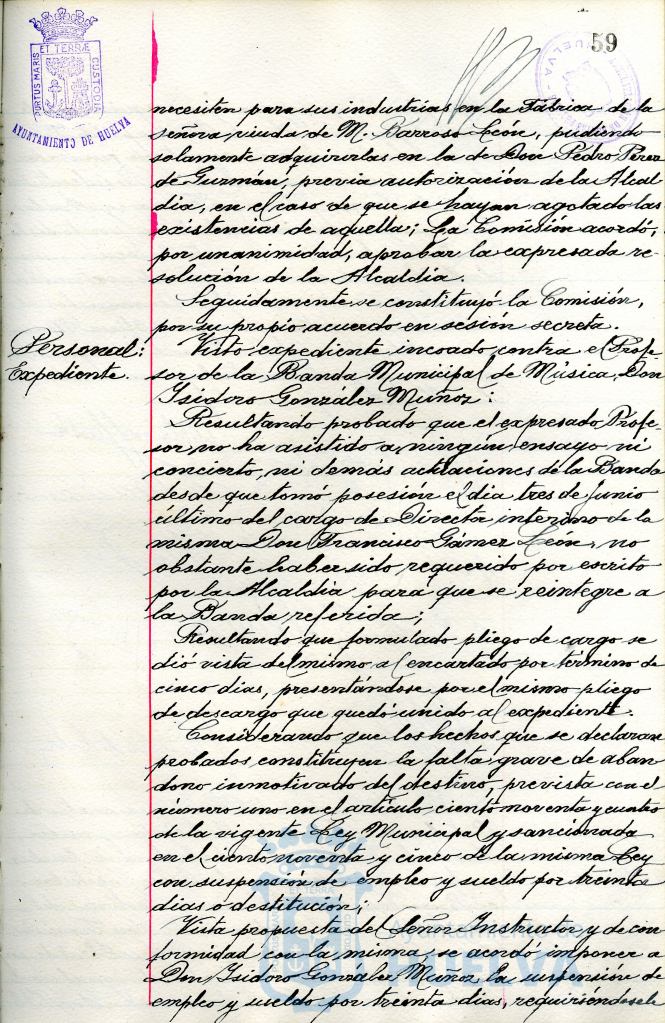 59
PORTUS MARIS ET TERRÆ CUSTODIA
AYUNTAMIENTO DE HUELVA
necesiten para sus industrias en la Fábrica de la
señora viuda de M. Barroso León, pudiendo
solamente adquirirlas en la de Don Pedro Pérez
de Guzmán, previa autorización de la Alcal-
día, en el caso de que se hayan agotado las
existencias de aquella; La Comisión acordó,
por unanimidad, aprobar la expresada re-
solución de la Alcaldía.
Seguidamente se constituyó la Comisión,
por su propio acuerdo en sesión secreta.
Personal:
Expediente.
Visto expediente incoado contra el Profe-
sor de la Banda Municipal de Música, Don
Isidoro González Muñoz:
Resultando probado que el expresado Profe-
sor no ha asistido a ningún ensayo ni
concierto, ni demás actuaciones de la Banda
desde que tomó posesión el dia tres de junio
último del cargo de Director interino de la
misma Don Francisco Gámez León, no
obstante haber sido requerido por escrito
por la Alcaldía para que se reintegre a
la Banda referida;
Resultando que formulado pliego de cargo se
dió vista del mismo al encartado por término de
cinco dias, presentándose por el mismo pliego
de descargo que quedó unido al expediente.
Considerando que los hechos que se declaran
probados constituyen la falta grave de aban-
dono inmotivado del destino, prevista con el
número uno en el artículo ciento noventa y cuatro
de la vigente Ley Municipal y sancionada
en el ciento noventa y cinco de la misma Ley
con suspensión de empleo y sueldo por treinta
dias o destitución;
Vista propuesta del Señor Instructor y de con-
formidad con la misma, se acordó imponer a
Don Isidoro González Muñoz la suspensión de
empleo y sueldo por treinta dias, requiriéndosele